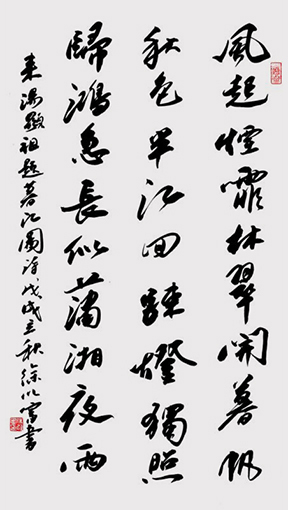 風起煙霏林翠開暮帆
秋色半江回疎燈獨照
歸鴻急長似瀟湘夜雨
来湯顯祖題暮江圖诗戊戌立秋徐書